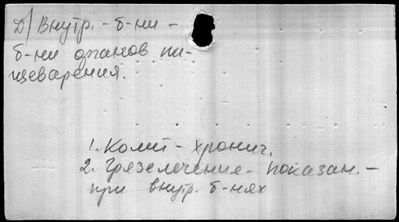 Д/ Внутр. - б-ни -
б-ни органов пи-
щеварения.
1. Колит - хронич.
2. Грязелечение - показан. -
при внутр. б-нях